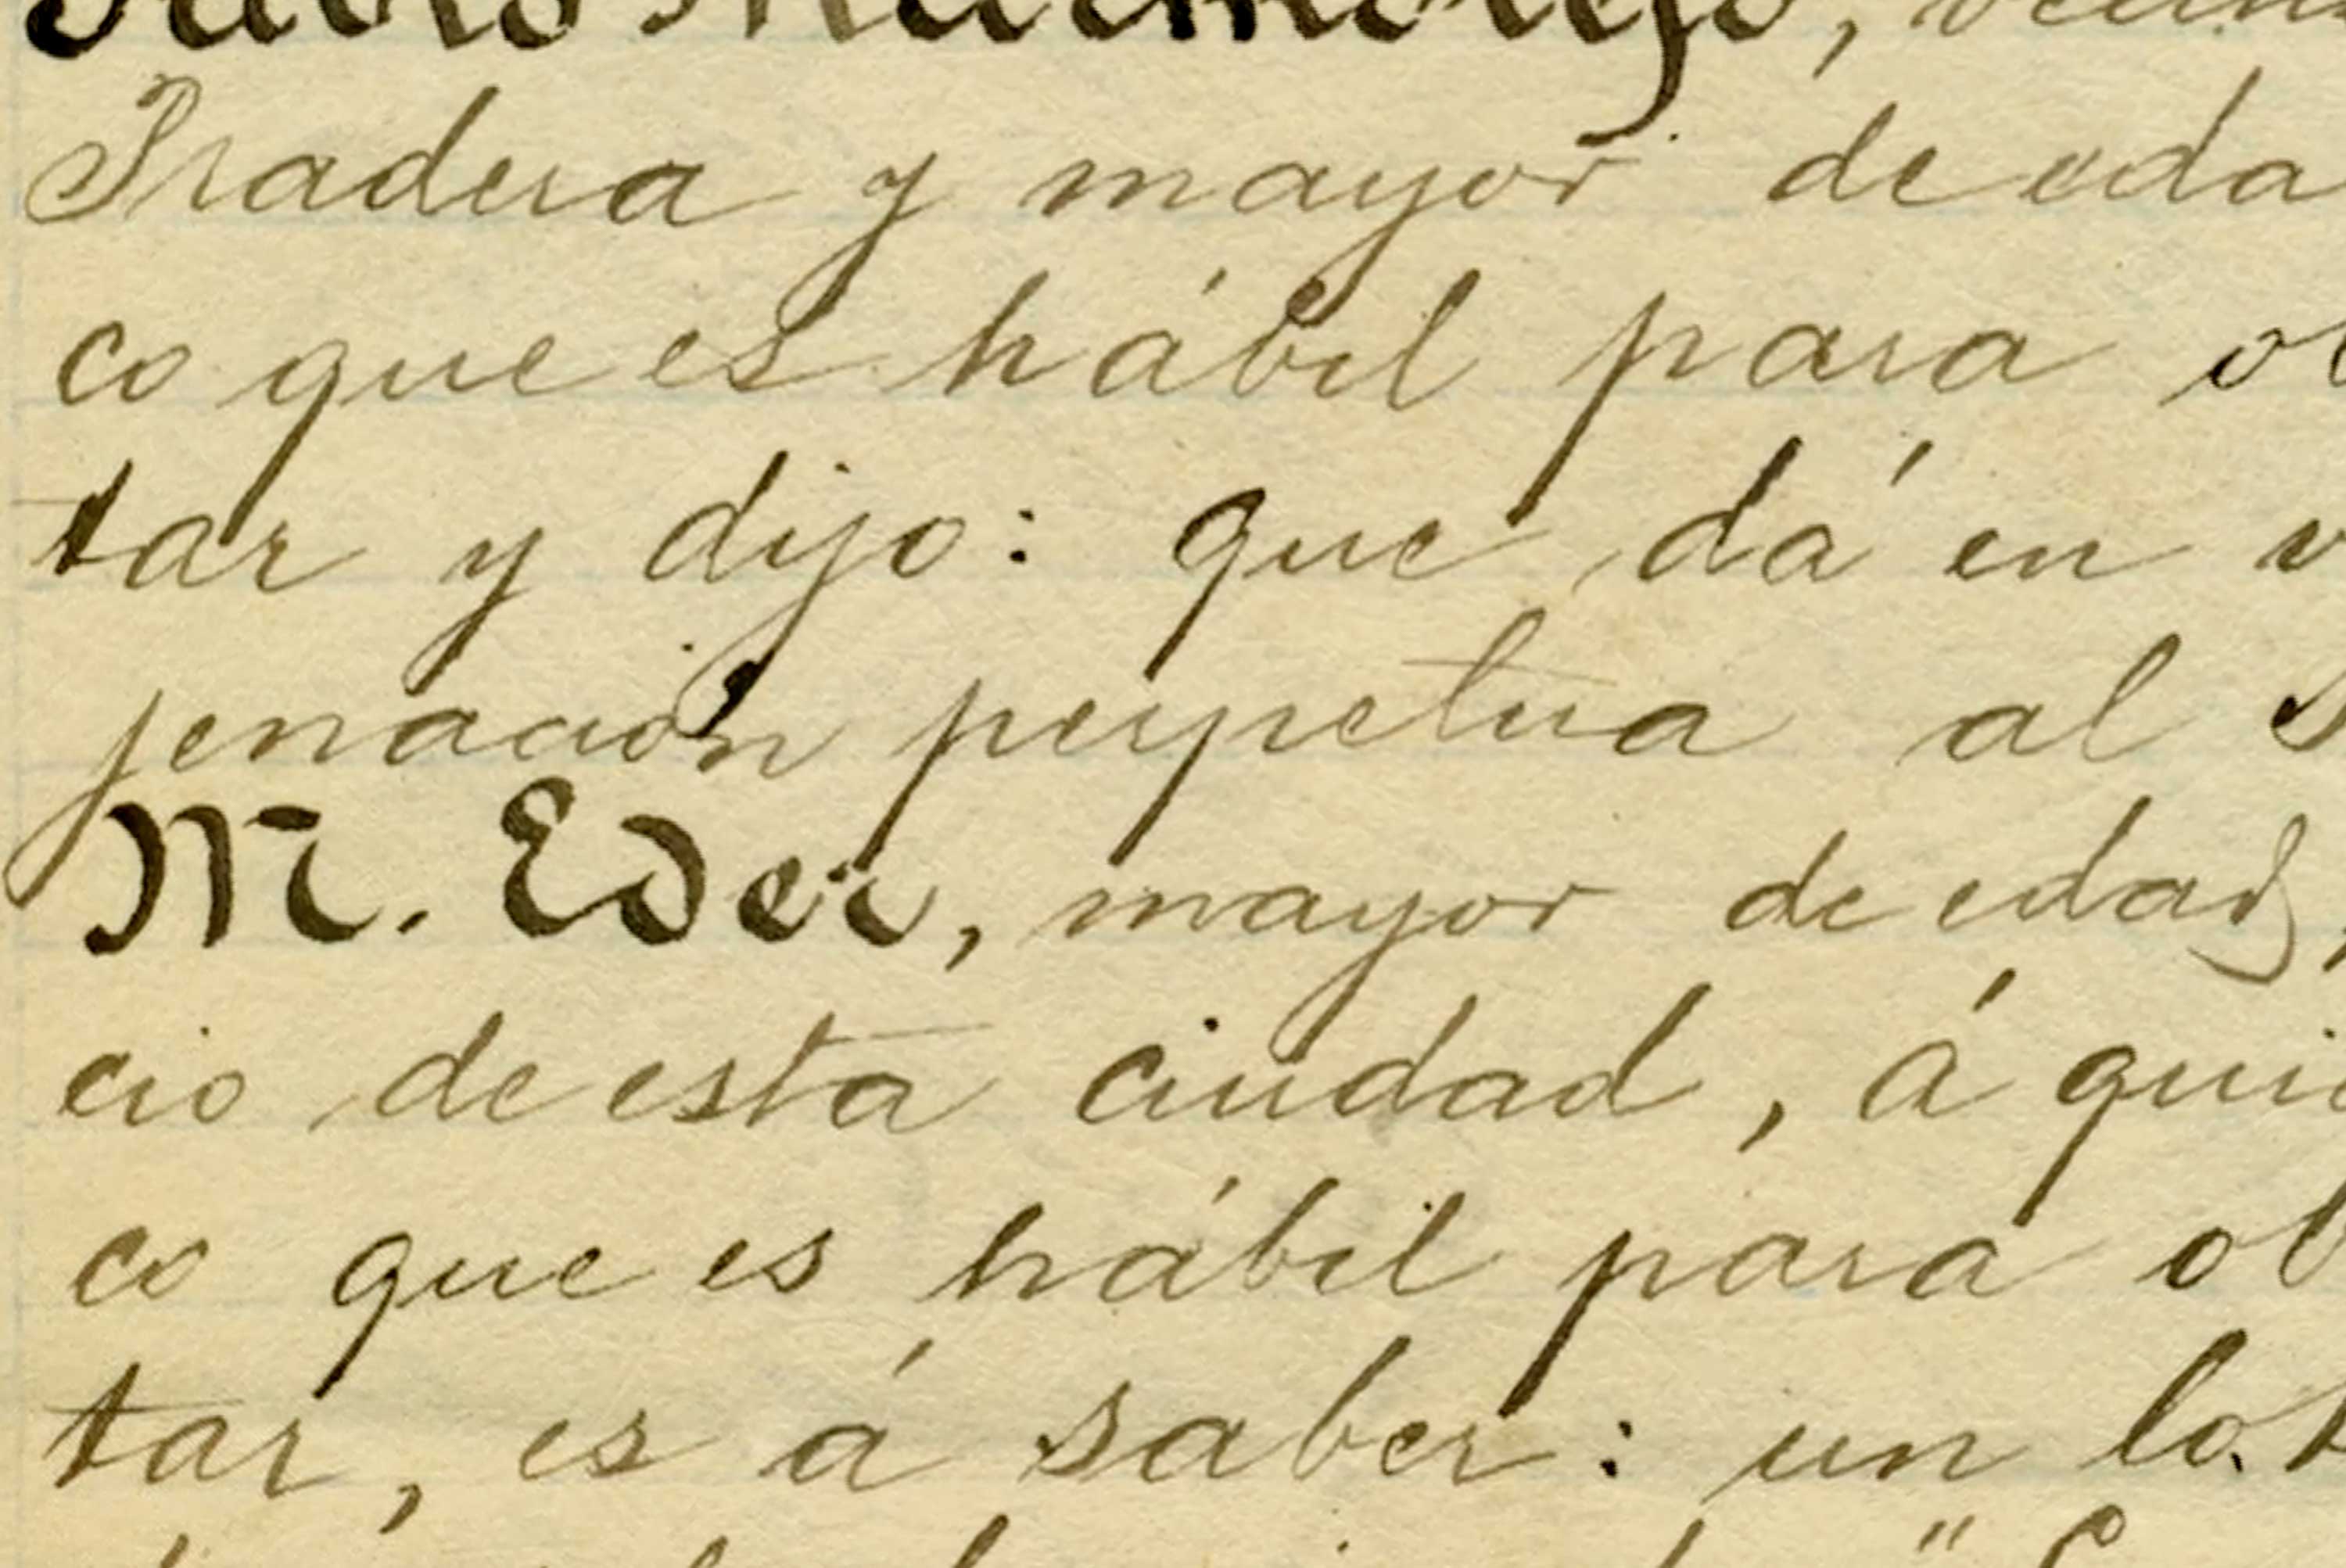 Pablo Marmolejo, vecin
Pradera y mayor de eda
co que es hábil para ob
tar y dijo: que dá en v
jenación perpetua al S
M. Eder, mayor de edad,
cio de esta ciudad, á quie
co que es hábil para ob
tar, es á saber: un lot